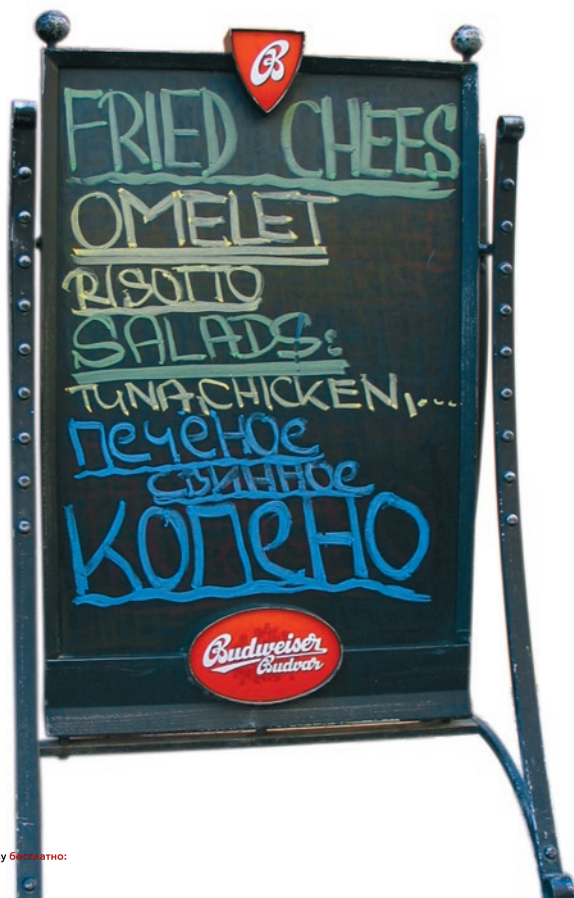 B
FRIED CHEES
OMELET
RISOTTO
SALADS:
TUNA, CHICKEN,...
печёное
свинное
копено
Budweiser
Budvar
у бесплатно: